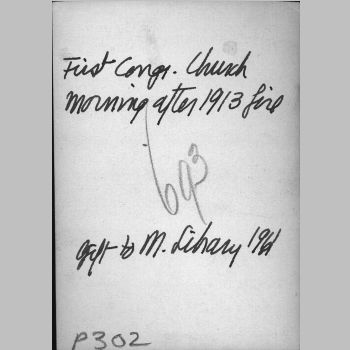 First Congr. Church
morning after 1913 fire
693
gift to M. Library 1961
P302